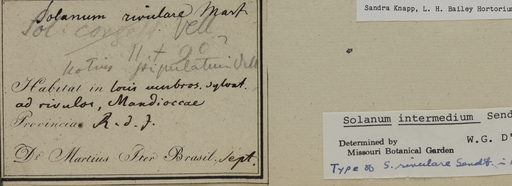 Solanum rivulare Mart
Sol. Vell
11 + 90
potius stipulatum Vell
Habitat in locis umbros. sylvat.
ad rivulos, Mandioccae
Provincia R. d. J.
De Martius Iter Brasil. Sept.
Sandra Knapp, L. H. Bailey Hortorium
Solanum intermedium Send
Determined by W.G. D'
Missouri Botanical Garden
TYPE of S. rivulare Sendt.